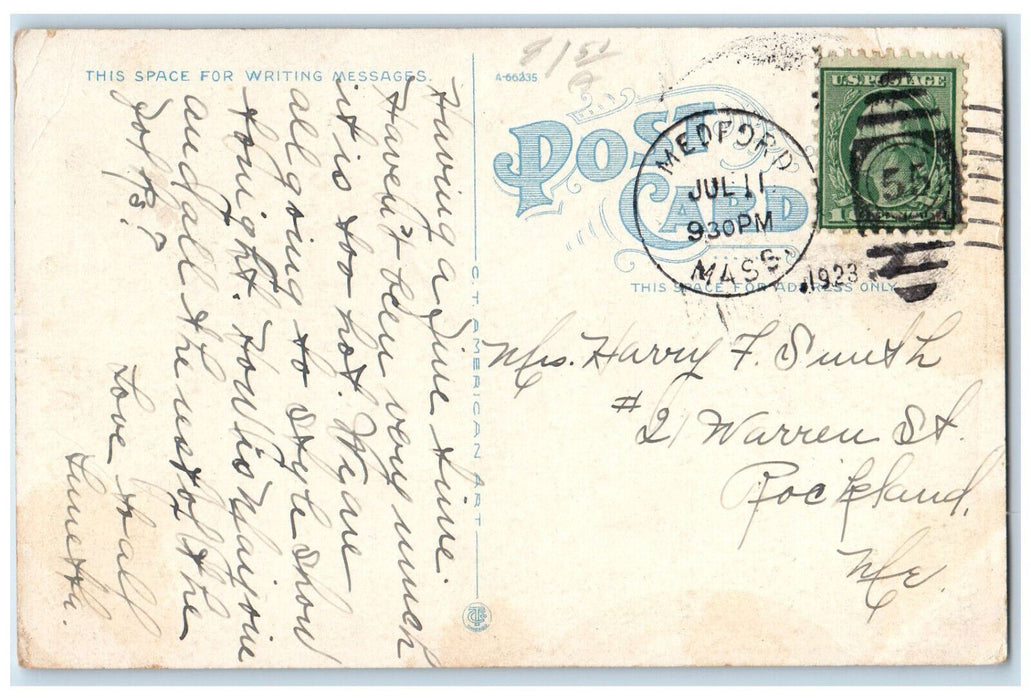 THIS SPACE FOR WRITING MESSAGES.
Having a fine time
Haven't been very much
it is too hot. We are
all going to Style Show
tonight. How is Marjorie
and all the rest of the
folks?
Love to all
C.T. AMERICAN ART
A-66235
POST CARD
MEDFORD
JUL 11
930PM
MASS.
1923
U.S. POSTAGE
55
THIS SPACE FOR ADDRESS ONLY
Mrs. Harry F. Smith
#21 Warren St.
Rockland,
Me.